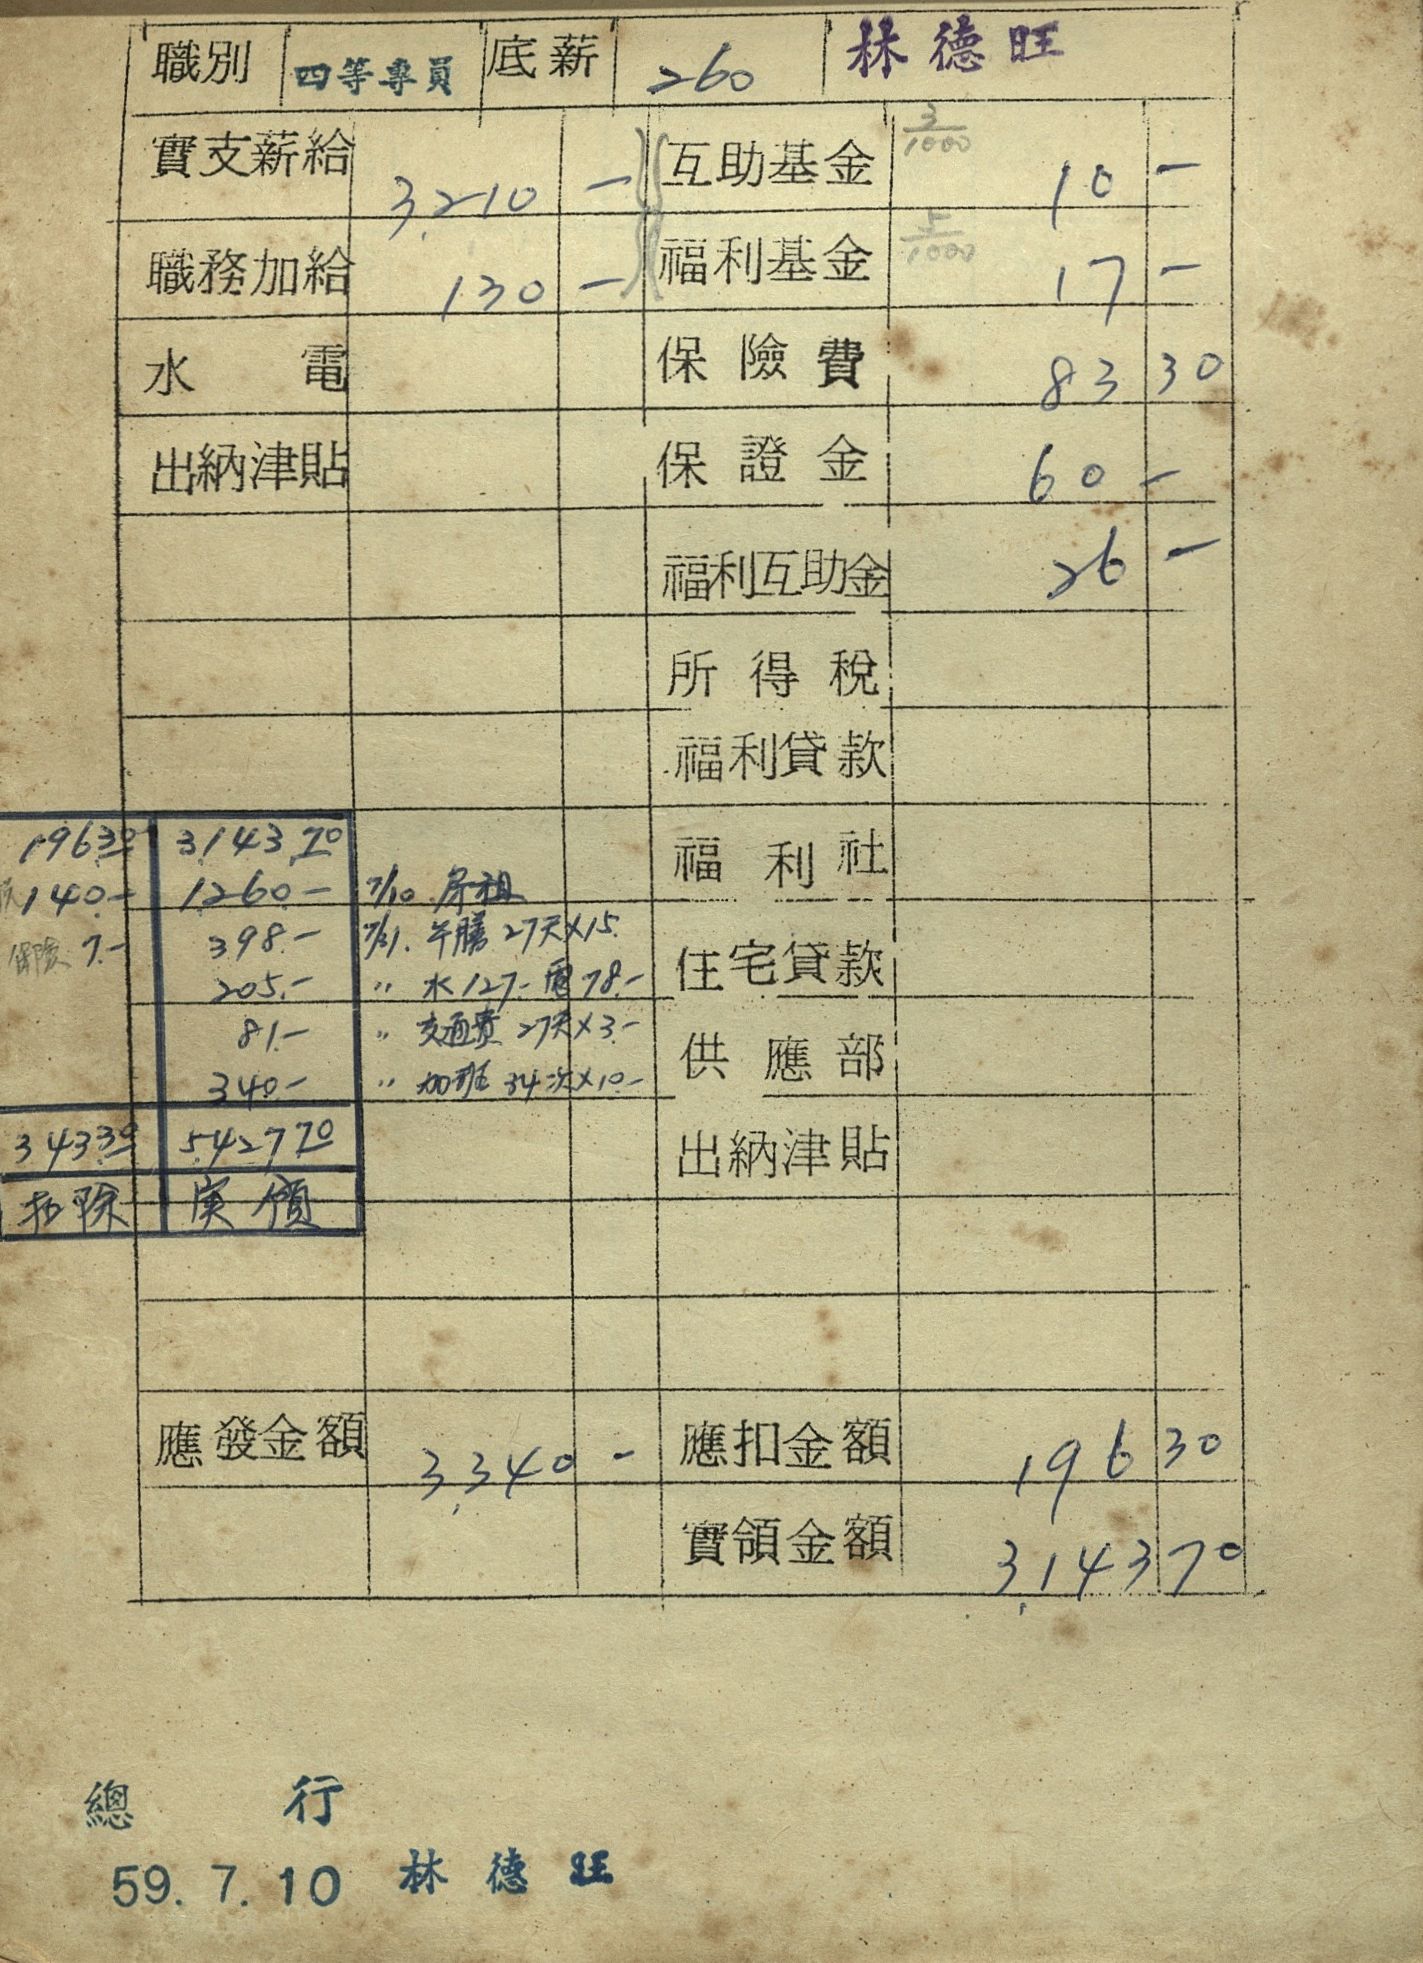 職別 四等專員 底薪 260 林德旺
實支薪給 3,210 - 互助基金 3/1000 10 -
職務加給 130 - 福利基金 5/1000 17 -
水電 保險費 83 30
出納津貼 保證金 60 -
福利互助金 26 -
所得稅
福利貸款
196.30 3,143.70 福利社
140.- 1,260.- 7/10 房租
保險 7.- 398.- 7/31. 午膳 27天×15. 住宅貸款
205.- 〃 水127.- 電78.-
81.- 〃 交通費 27天×3.- 供應部
340.- 〃 加班 34次×10.-
343.30 5,427.70 出納津貼
扣除 実領
應發金額 3,340 - 應扣金額 196 30
實領金額 3,143 70
總行
59.7.10 林德旺